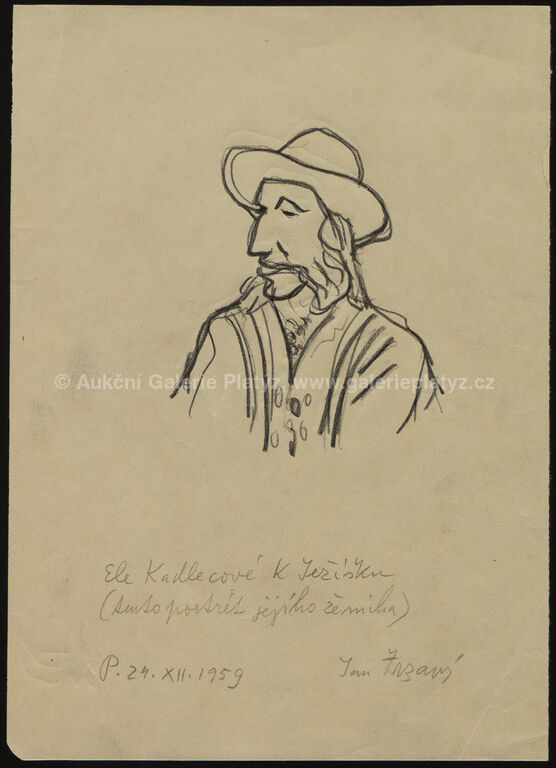 © Aukční Galerie Platýz, www.galerieplatyz.cz
Ele Kadlecové K Ježíšku
(Autoportrét jejího ženicha)
P. 24. XII. 1959 Jan Zrzavý